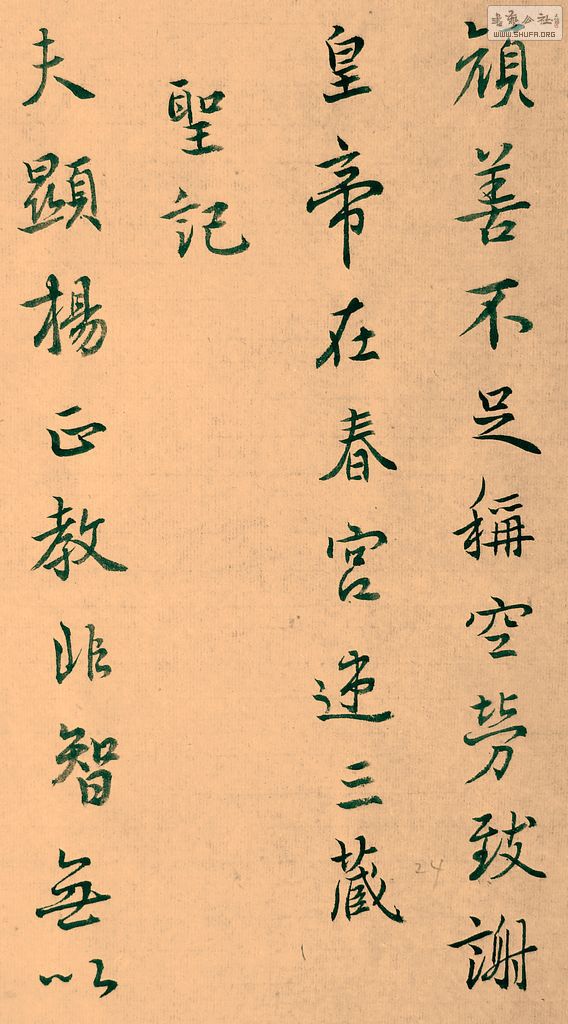 顧善不足稱空勞致謝
皇帝在春宮述三藏
聖記
夫顯楊正教非智無以
24
書法公社
WWW.SHUFA.ORG